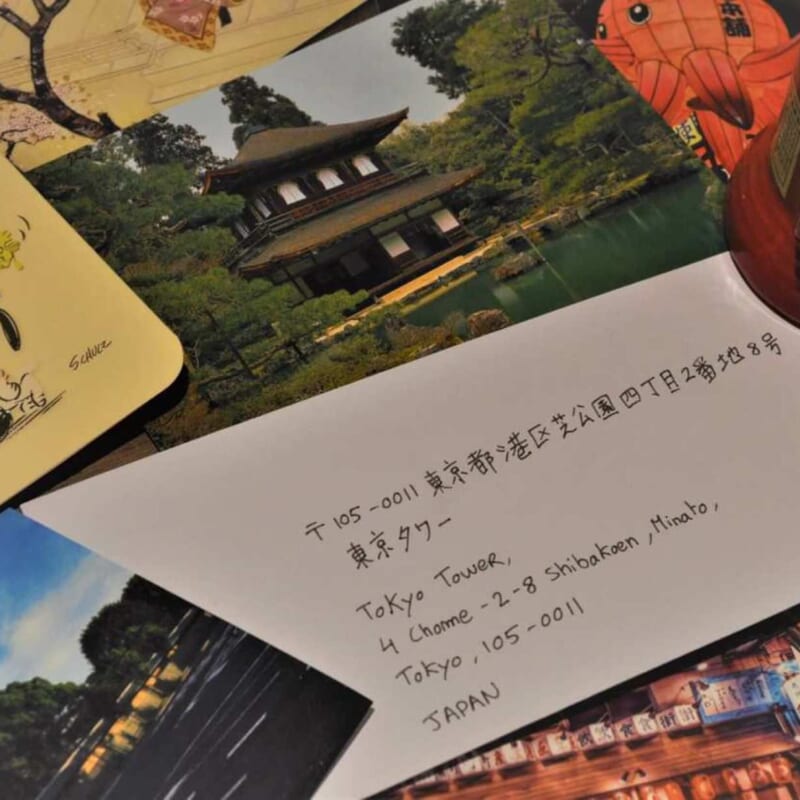 本舗
SCHULZ
〒105-0011 東京都港区芝公園四丁目2番地8号
東京タワー
Tokyo Tower,
4 Chome-2-8 Shibakoen, Minato,
Tokyo, 105-0011
JAPAN